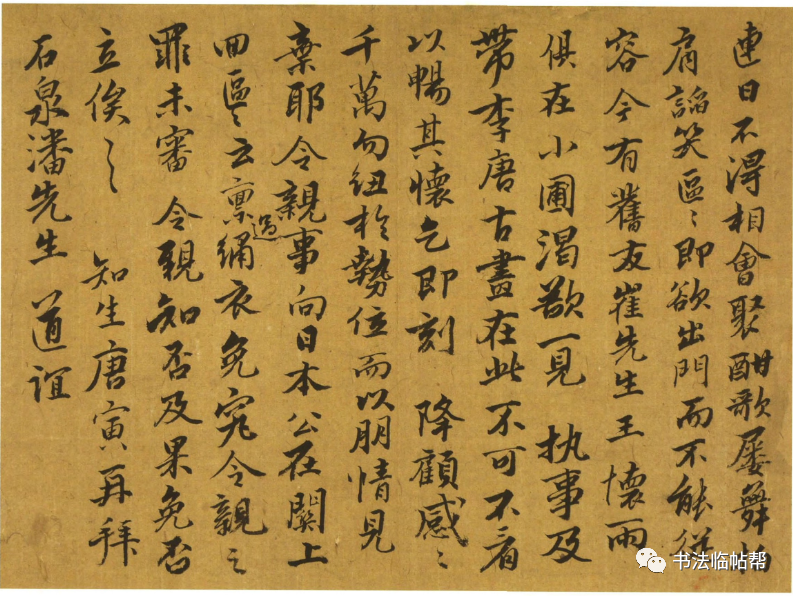 連日不得相會聚酣歌屢舞拍
肩諂笑區〻即欲出門而不能從
容今有舊友崔先生王懷雨
俱在小圃渴欲一見 执事及
帶李唐古畫在此不可不看
以暢其懷乞即刻 降顧感〻
千萬勿紐於勢位而以朋情見
棄耶令親事向日本公在闕上
回區〻云稟過綉衣免究令親之
罪未審 令親知否及果免否
立俟〻 知生唐寅再拜
石泉潘先生 道誼
书法临帖帮